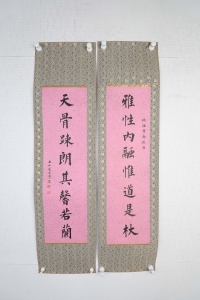 雅性内融惟道是杖
天骨疎朗其馨若蘭